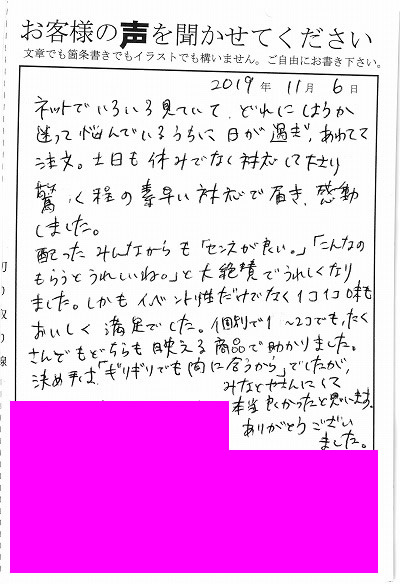 お客様の声を聞かせてください
文章でも箇条書きでもイラストでも構いません。ご自由にお書き下さい。
2019年 11月 6日
ネットでいろいろ見ていて、どれにしようか
迷って悩んでいるうちに日が過ぎ、あわてて
注文。土日も休みでなく対応して下さり
驚く程の素早い対応で届き、感動
しました。
配ったみんなからも「センスが良い。」「こんなの
もらうとうれしいね。」と大絶賛でうれしくなり
ました。しかもイベント性だけでなく1コ1コ味も
おいしく満足でした。個別で1~2コでも、たく
さんでもどちらも映える商品で助かりました。
決め手は、「ギリギリでも間に合うから」でしたが、
みなとやさんにして
本当良かったと思います。
ありがとうござい
ました。
切り取り線